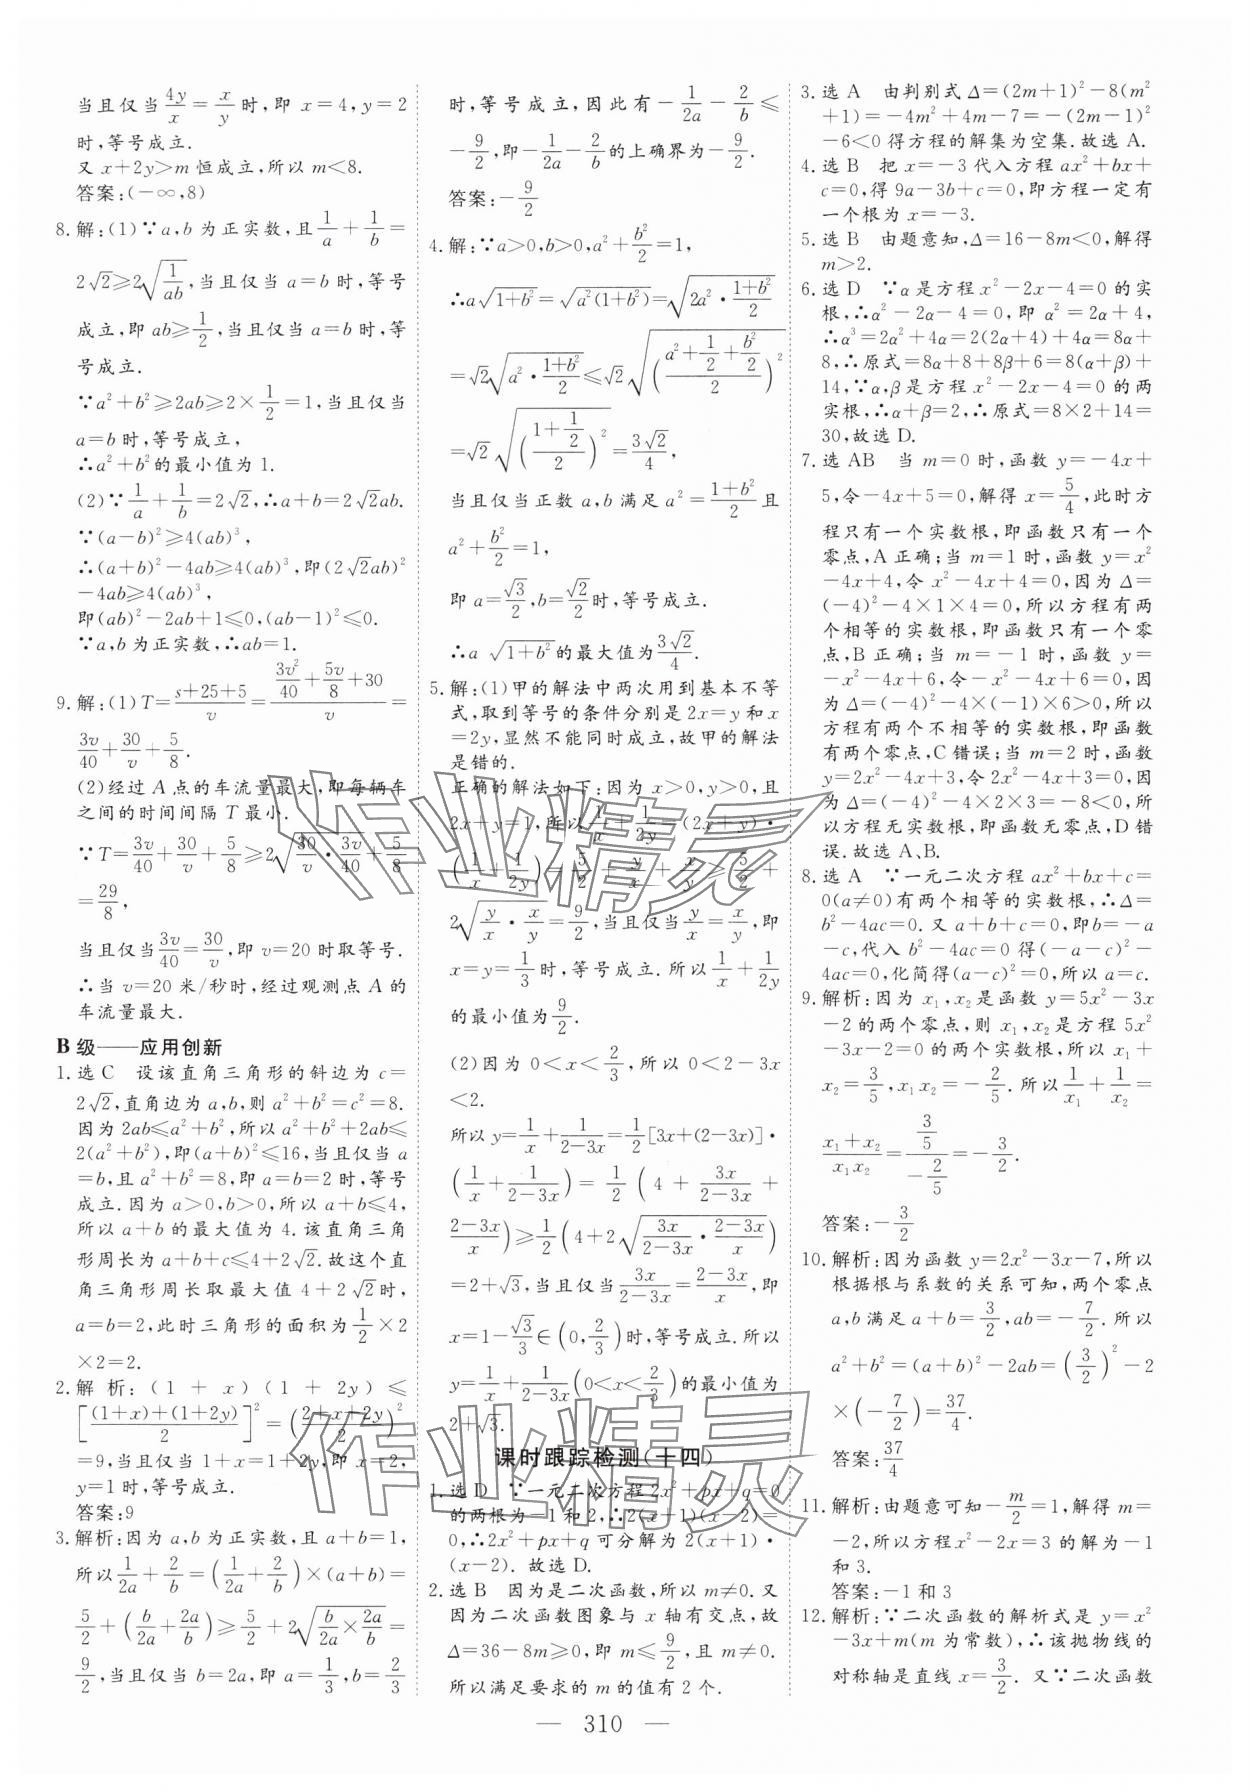 当且仅当4y/x=x/y时,即 x=4,y=2
时,等号成立.
又 x+2y>m 恒成立,所以 m<8.
答案:(-∞,8)
8.解:(1)∵a,b 为正实数,且1/a+1/b=
2√2≥2√(1/ab),当且仅当 a=b 时,等号
成立,即 ab≥1/2,当且仅当 a=b 时,等
号成立.
∵a²+b²≥2ab≥2×1/2=1,当且仅当
a=b 时,等号成立,
∴a²+b²的最小值为 1.
(2)∵1/a+1/b=2√2,∴a+b=2√2ab.
∵(a-b)²≥4(ab)³,
∴(a+b)²-4ab≥4(ab)³,即(2√2ab)²
-4ab≥4(ab)³,
即(ab)²-2ab+1≤0,(ab-1)²≤0.
∵a,b 为正实数,∴ab=1.
9.解:(1)T=(s+25+5)/v=(3v²/40+5v/8+30)/v=
3v/40+30/v+5/8.
(2)经过 A 点的车流量最大,即每辆车
之间的时间间隔 T 最小.
∵T=3v/40+30/v+5/8≥2√(30/v·3v/40)+5/8
=29/8,
当且仅当3v/40=30/v,即 v=20 时取等号.
∴当 v=20 米/秒时,经过观测点 A 的
车流量最大.
B 级——应用创新
1.选 C 设该直角三角形的斜边为 c=
2√2,直角边为 a,b,则 a²+b²=c²=8.
因为 2ab≤a²+b²,所以 a²+b²+2ab≤
2(a²+b²),即(a+b)²≤16,当且仅当 a
=b,且 a²+b²=8,即 a=b=2 时,等号
成立.因为 a>0,b>0,所以 a+b≤4,
所以 a+b 的最大值为 4.该直角三角
形周长为 a+b+c≤4+2√2.故这个直
角三角形周长取最大值 4+2√2时,
a=b=2,此时三角形的面积为1/2×2
×2=2.
2.解析:(1+x)(1+2y)≤
[((1+x)+(1+2y))/2]²=((2+x+2y)/2)²
=9,当且仅当 1+x=1+2y,即 x=2,
y=1 时,等号成立.
答案:9
3.解析:因为 a,b 为正实数,且 a+b=1,
所以1/2a+2/b=(1/2a+2/b)×(a+b)=
5/2+(b/2a+2a/b)≥5/2+2√(b/2a×2a/b)=
9/2,当且仅当 b=2a,即 a=1/3,b=2/3
时,等号成立,因此有-1/2a-2/b≤
-9/2,即-1/2a-2/b的上确界为-9/2.
答案:-9/2
4.解:∵a>0,b>0,a²+b²/2=1,
∴a√(1+b²)=√(a²(1+b²))=√(2a²·(1+b²)/2)
=√2√(a²·(1+b²)/2)≤√2√(((a²+1/2+b²/2)/2)²)
=√2√(((1+1/2)/2)²)=3√2/4,
当且仅当正数 a,b 满足 a²=(1+b²)/2且
a²+b²/2=1,
即 a=√3/2,b=√2/2时,等号成立.
∴a√(1+b²)的最大值为3√2/4.
5.解:(1)甲的解法中两次用到基本不等
式,取到等号的条件分别是 2x=y 和 x
=2y,显然不能同时成立,故甲的解法
是错的.
正确的解法如下:因为 x>0,y>0,且
2x+y=1,所以1/x+1/2y=(2x+y)·
(1/x+1/2y)=5/2+y/x+x/y≥5/2+
2√(y/x·x/y)=9/2,当且仅当y/x=x/y,即
x=y=1/3时,等号成立.所以1/x+1/2y
的最小值为9/2.
(2)因为 0<x<2/3,所以 0<2-3x
<2.
所以 y=1/x+1/(2-3x)=1/2[3x+(2-3x)]·
(1/x+1/(2-3x))=1/2(4+3x/(2-3x)+
(2-3x)/x)≥1/2(4+2√(3x/(2-3x)·(2-3x)/x))
=2+√3,当且仅当3x/(2-3x)=(2-3x)/x,即
x=1-√3/3∈(0,2/3)时,等号成立.所以
y=1/x+1/(2-3x)(0<x<2/3)的最小值为
2+√3.
课时跟踪检测(十四)
1.选 D ∵一元二次方程 2x²+px+q=0
的两根为-1 和 2,∴2(x+1)(x-2)=
0,∴2x²+px+q 可分解为 2(x+1)·
(x-2).故选 D.
2.选 B 因为是二次函数,所以 m≠0.又
因为二次函数图象与 x 轴有交点,故
Δ=36-8m≥0,即 m≤9/2,且 m≠0.
所以满足要求的 m 的值有 2 个.
3.选 A 由判别式 Δ=(2m+1)²-8(m²
+1)=-4m²+4m-7=-(2m-1)²
-6<0 得方程的解集为空集.故选 A.
4.选 B 把 x=-3 代入方程 ax²+bx+
c=0,得 9a-3b+c=0,即方程一定有
一个根为 x=-3.
5.选 B 由题意知,Δ=16-8m<0,解得
m>2.
6.选 D ∵α是方程 x²-2x-4=0 的实
根,∴α²-2α-4=0,即 α²=2α+4,
∴α³=2α²+4α=2(2α+4)+4α=8α+
8,∴原式=8α+8+8β+6=8(α+β)+
14,∵α,β是方程 x²-2x-4=0 的两
实根,∴α+β=2,∴原式=8×2+14=
30,故选 D.
7.选 AB 当 m=0 时,函数 y=-4x+
5,令-4x+5=0,解得 x=5/4,此时方
程只有一个实数根,即函数只有一个
零点,A 正确;当 m=1 时,函数 y=x²
-4x+4,令 x²-4x+4=0,因为 Δ=
(-4)²-4×1×4=0,所以方程有两
个相等的实数根,即函数只有一个零
点,B 正确;当 m=-1 时,函数 y=
-x²-4x+6,令-x²-4x+6=0,因
为 Δ=(-4)²-4×(-1)×6>0,所以
方程有两个不相等的实数根,即函数
有两个零点,C 错误;当 m=2 时,函数
y=2x²-4x+3,令 2x²-4x+3=0,因
为 Δ=(-4)²-4×2×3=-8<0,所
以方程无实数根,即函数无零点,D 错
误.故选 A、B.
8.选 A ∵一元二次方程 ax²+bx+c=
0(a≠0)有两个相等的实数根,∴Δ=
b²-4ac=0.又 a+b+c=0,即 b=-a
-c,代入 b²-4ac=0 得(-a-c)²-
4ac=0,化简得(a-c)²=0,所以 a=c.
9.解析:因为 x₁,x₂是函数 y=5x²-3x
-2 的两个零点,则 x₁,x₂是方程 5x²
-3x-2=0 的两个实数根,所以 x₁+
x₂=3/5,x₁x₂=-2/5.所以1/x₁+1/x₂=
(x₁+x₂)/(x₁x₂)=(3/5)/(-2/5)=-3/2.
答案:-3/2
10.解析:因为函数 y=2x²-3x-7,所以
根据根与系数的关系可知,两个零点
a,b 满足 a+b=3/2,ab=-7/2.所以
a²+b²=(a+b)²-2ab=(3/2)²-2
×(-7/2)=37/4.
答案:37/4
11.解析:由题意可知-m/2=1,解得 m=
-2,所以方程x²-2x=3 的解为-1
和 3.
答案:-1 和 3
12.解析:∵二次函数的解析式是 y=x²
-3x+m(m 为常数),∴该抛物线的
对称轴是直线 x=3/2.又∵二次函数
— 310 —
作业精灵
作业精灵